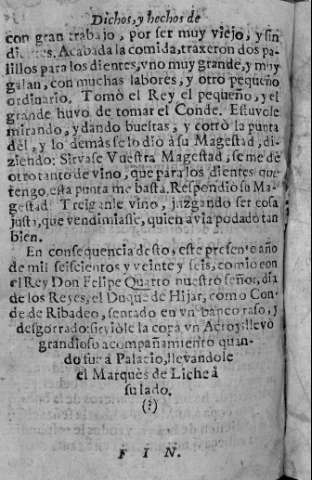 Dichos, y hechos de
con gran trabajo, por ser muy viejo, y sin
dientes. Acabada la comida, traxeron dos pa-
lillos para los dientes, vno muy grande, y muy
galan, con muchas labores, y otro pequeño
ordinario. Tomò el Rey el pequeño, y el
grande huvo de tomar el Conde. Estuvole
mirando, y dando bueltas, y cortò la punta
dèl, y lo demàs se lo dio à su Magestad, di-
ziendo: Sirvase Vuestra Magestad, se me dè
otro tanto de vino, que para los dientes que
tengo, esta punta me basta. Respondiò su Ma-
gestad: Treiganle vino, juzgando ser cosa
justa, que vendimiasse, quien avia podado tan
bien.
En consequencia desto, este presente año
de mil seiscientos y veinte y seis, comio con
el Rey Don Felipe Quarto nuestro señor, dia
de los Reyes, el Duque de Hijar, como Con-
de de Ribadeo, sentado en vn banco raso, y
desgorrado: sirviòle la copa vn Acroy: llevò
grandioso acompañamiento quan-
do fue à Palacio, llevandole
el Marquès de Liche à
su lado.
(?)
FIN.